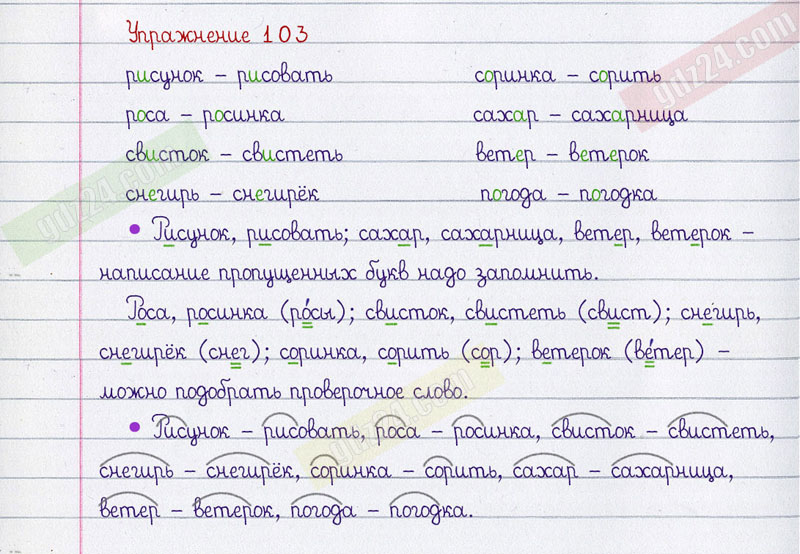 Упражнение 103
рисунок – рисовать соринка – сорить
роса – росинка сахар – сахарница
свисток – свистеть ветер – ветерок
снегирь – снегирёк погода – погодка
• Рисунок, рисовать; сахар, сахарница, ветер, ветерок –
написание пропущенных букв надо запомнить.
Роса, росинка (ро́сы); свисток, свистеть (свист); снегирь,
снегирёк (снег); соринка, сорить (сор); ветерок (ве́тер) –
можно подобрать проверочное слово.
• Рисунок – рисовать, роса – росинка, свисток – свистеть,
снегирь – снегирёк, соринка – сорить, сахар – сахарница,
ветер – ветерок, погода – погодка.
gdz24.com
gdz24.com
gdz24.com